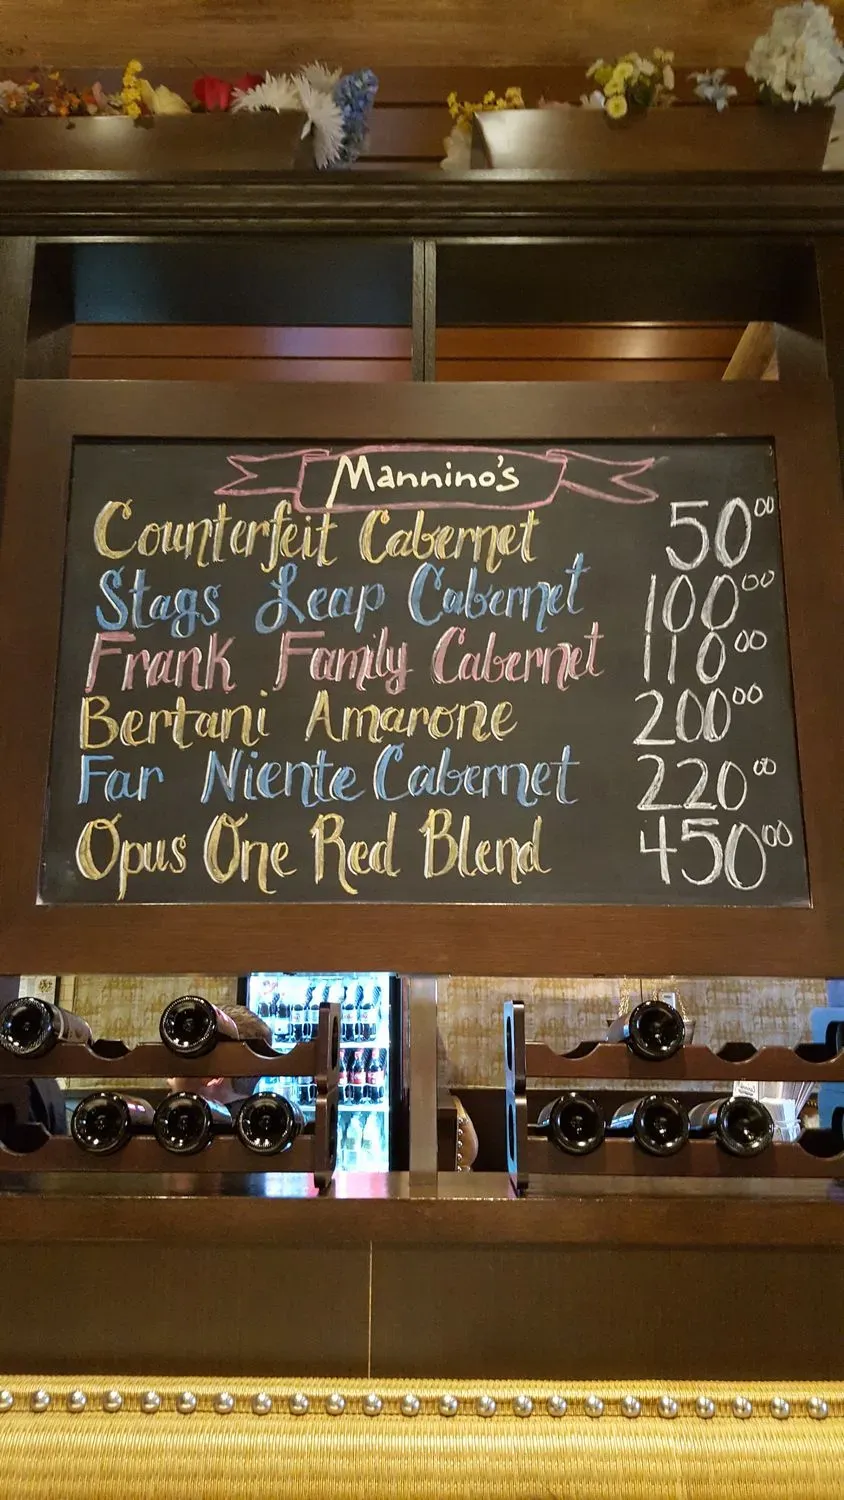 Mannino's
Counterfeit Cabernet 50⁰⁰
Stags Leap Cabernet 100⁰⁰
Frank Family Cabernet 110⁰⁰
Bertani Amarone 200⁰⁰
Far Niente Cabernet 220⁰⁰
Opus One Red Blend 450⁰⁰